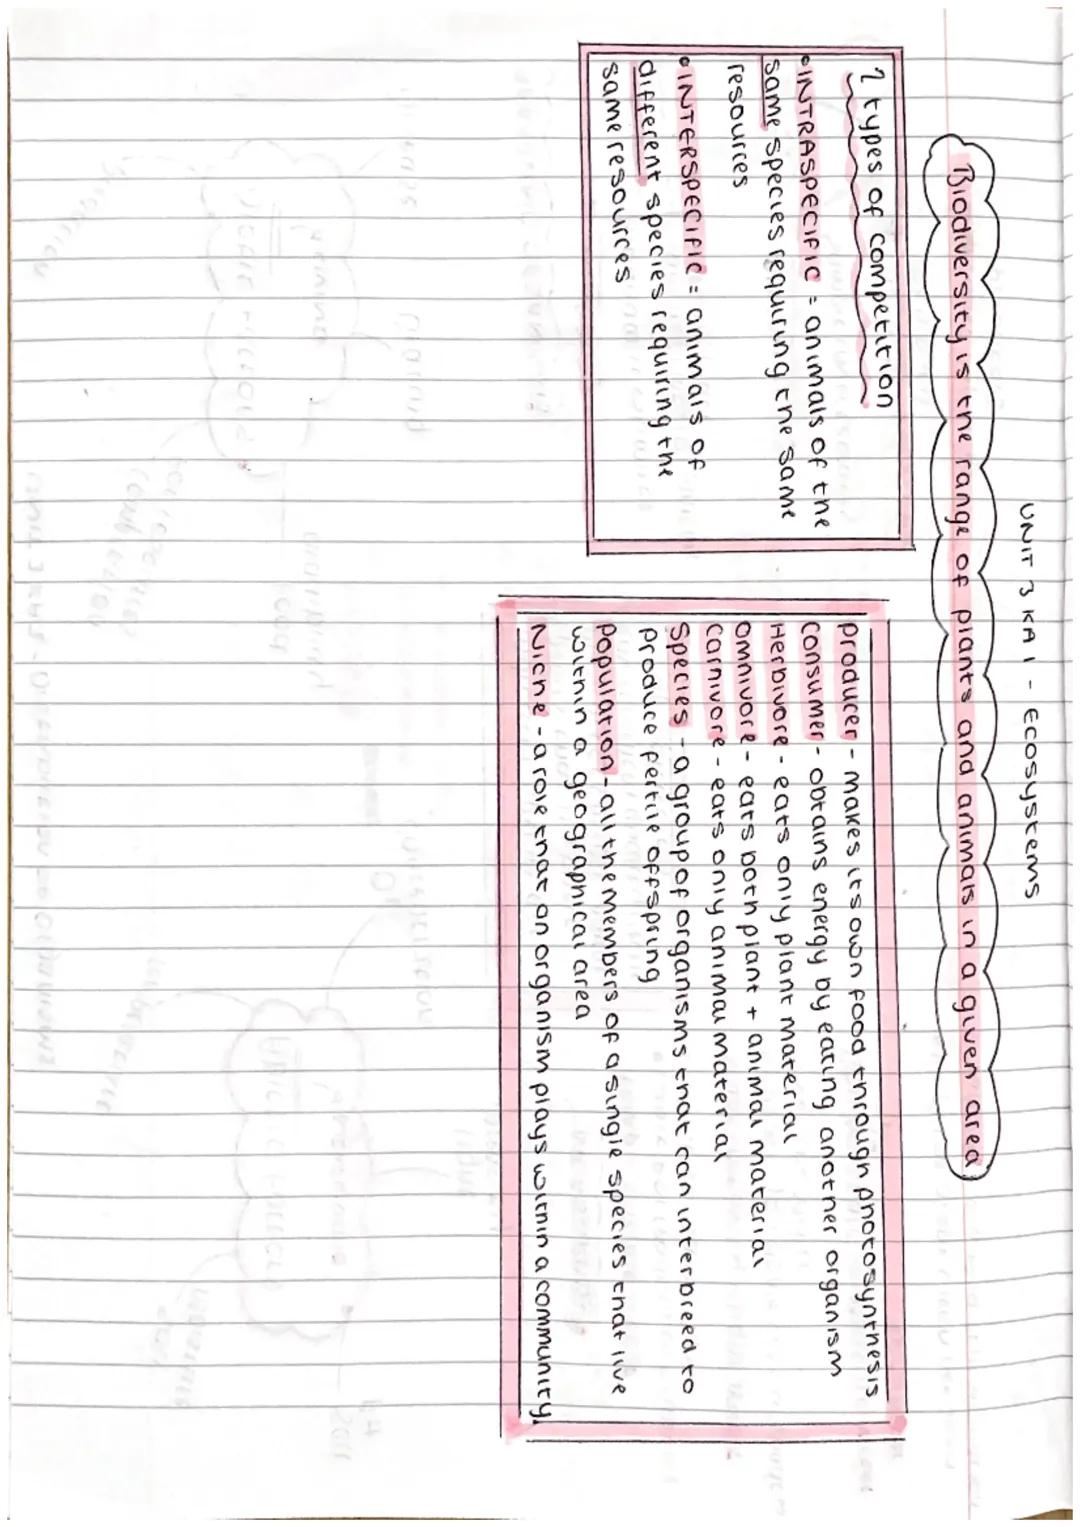 UNIT 3 KA 1 - ECOSYSTEMS
Biodiversity is the range of plants and animals in a given area
2 types of competition
• INTRASPECIFIC = animals of the
same species requiring the same
resources
• INTERSPECIFIC = animals of
different species requiring the
same resources
Producer - makes its own food through photosynthesis
Consumer - obtains energy by eating another organism
Herbivore - eats only plant material
Omnivore - eats both plant + animal material
Carnivore - eats only animal material
Species - a group of organisms that can interbreed to
produce fertile offspring
Population - all the members of a single species that live
within a geographical area
Niche - a role that an organism plays within a community.